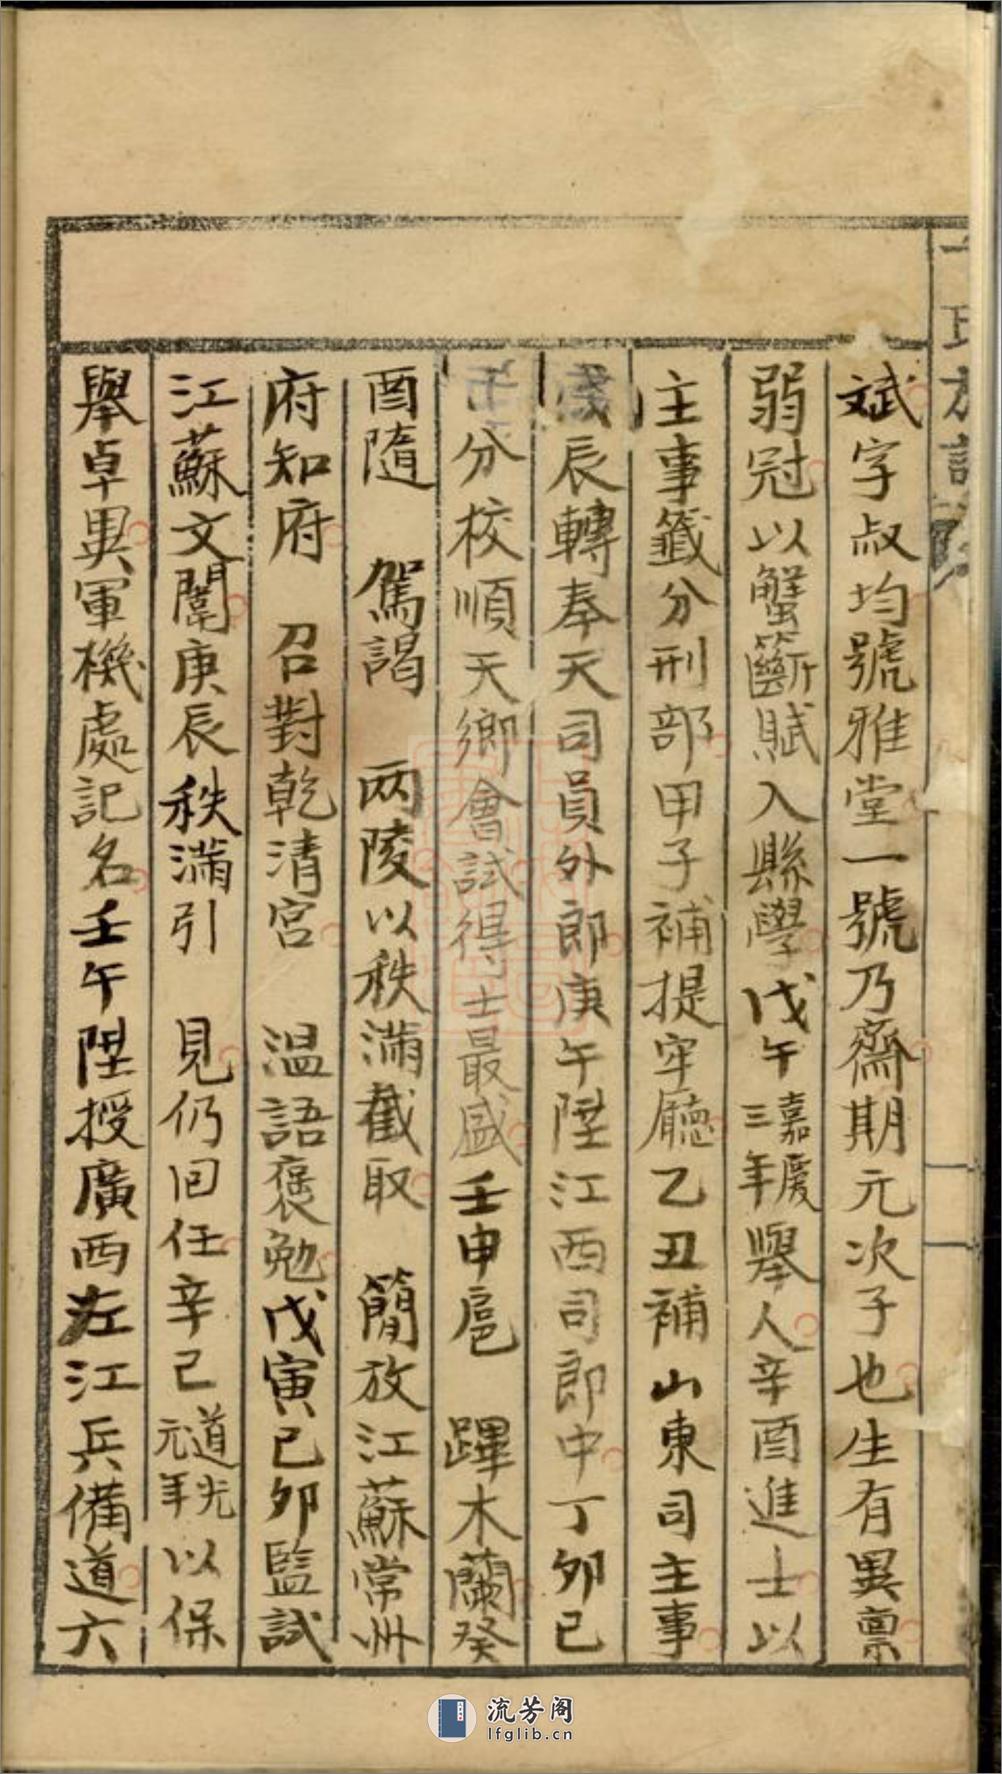 斌字叔均號雅堂一號乃齋期元次子也生有異禀
弱冠以蟹籪賦入縣學戊午嘉慶三年舉人辛酉進士以
主事籤分刑部甲子補提牢廳乙丑補山東司主事
辰轉奉天司員外郎庚午陞江西司郎中丁卯己
分校順天鄉會試得士最盛壬申扈　蹕木蘭癸
酉隨　駕謁　两陵以秩滿截取　簡放江蘇常州
府知府　召對乾清宮　温語褒勉戊寅己卯監試
江蘇文闈庚辰秩滿引　見仍回任辛巳道光元年以保
舉卓異軍機處記名壬午陞授廣西左江兵備道六
流芳阁
lfglib.cn